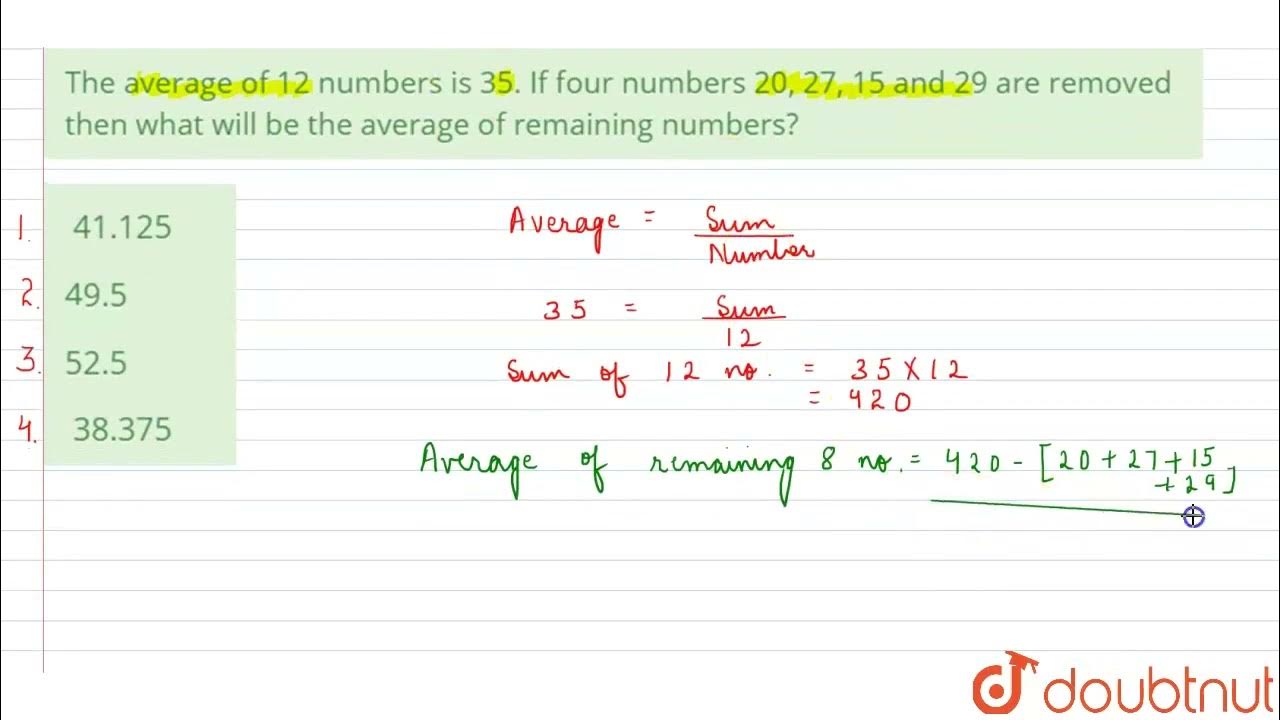 The average of 12 numbers is 35. If four numbers 20, 27, 15 and 29 are removed
then what will be the average of remaining numbers?
1. 41.125
2. 49.5
3. 52.5
4. 38.375
Average = Sum
Number
35 = Sum
12
Sum of 12 no. = 35 X 12
= 420
Average of remaining 8 no. = 420 - [20 + 27 + 15
+ 29]
doubtnut